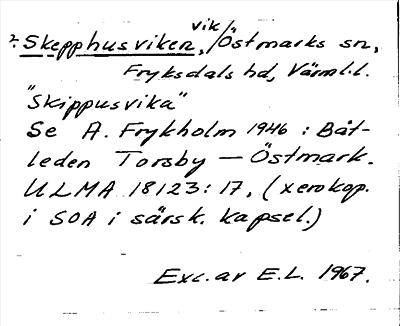 ?. Skepphusviken, vik / Östmarks sn,
Fryksdals hd, Värml.l.
"Skippusvika"
Se A. Frykholm 1946 : Båt-
leden Torsby — Östmark.
ULMA 18123:17, (xerokop.
i SOA i särsk. kapsel.)
Exc. av E.L. 1967.